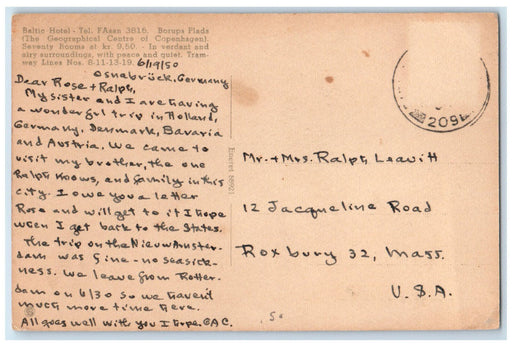 Baltic Hotel - Tel. FAsan 3816. Borups Plads
(The Geographical Centre of Copenhagen).
Seventy Rooms at kr. 9,50. - In verdant and
airy surroundings, with peace and quiet. Tram-
way Lines Nos. 8-11-13-19.
6/19/50
Osnabrück, Germany
Dear Rose + Ralph,
My sister and I are having
a wonderful trip in Holland,
Germany, Denmark, Bavaria
and Austria. We came to
visit my brother, the one
Ralph knows, and family in this
city. I owe you a letter
Rose and will get to it I hope
when I get back to the States.
The trip on the Nieuw Amster-
dam was fine - no seasick-
ness. We leave from Rotter-
dam on 6/30 so we haven't
much more time here.
All goes well with you I hope. CAC.
Eneret 88921
209
Mr. + Mrs. Ralph Leavitt
12 Jacqueline Road
Roxbury 32, Mass.
U.S.A.